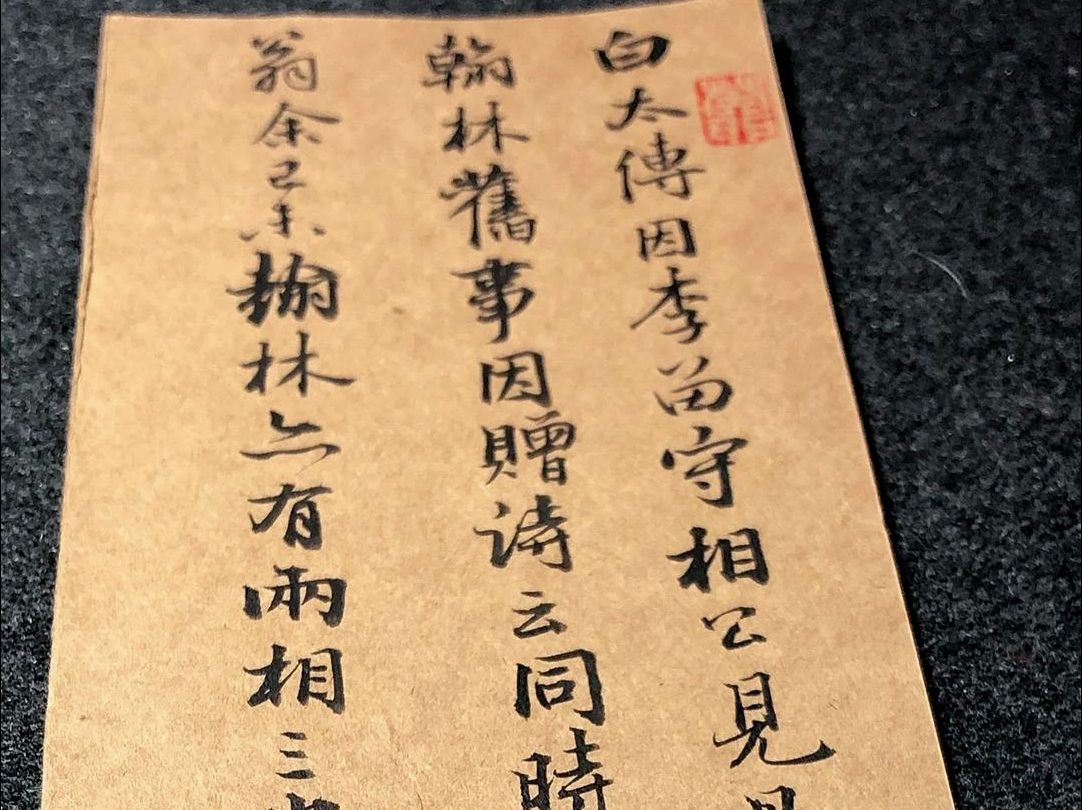 白太傅因李留守相公見
翰林舊事因贈詩云同時
翁余己未翰林亦有兩相三